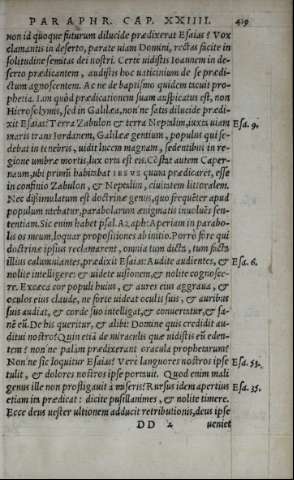 PARAPHR. CAP. XXIIII. 419
non id quoque futurum dilucide prædixerat Esaias? Vox
clamantis in deserto, parate uiam Domini, rectas facite in
solitudine semitas dei nostri. Certe uidistis Ioannem in de-
serto prædicantem, audistis hoc uaticinium de se prædi-
ctum agnoscentem. Ac ne de baptismo quidem tacuit pro-
phetia. Iam quòd prædicationem suam auspicatus est, non
Hierosolymis, sed in Galilæa, non'ne satis dilucide præ-
dixit Esaias? Terra Zabulon & terra Neptalim, iuxta uiam
Esa. 9.
maris trans Iordanem, Galilææ gentium, populus qui se-
debat in tenebris, uidit lucem magnam, sedentibus in re-
gione umbræ mortis, lux orta est eis. Cōstat autem Caper-
naum, ubi primùm habitabat IESVS quum prædicaret, esse
in confinio Zabulon, & Neptalim, ciuitatem littoralem.
Nec dissimulatum est doctrinæ genus, quo frequēter apud
populum utebatur, parabolarum ænigmatis inuoluēs sen-
tentiam. Sic enim habet psal. Asaph: Aperiam in parabo-
lis os meum, loquar propositiones ab initio. Porro fore qui
doctrinæ ipsius reclamarent, omnia tum dicta, tum facta
illius calumniantes, prædixit Esaias: Audite audientes, &
Esa. 6.
nolite intelligere: et uidete uisionem, & nolite cognosce-
re. Excæca cor populi huius, & aures eius aggraua, &
oculos eius claude, ne forte uideat oculis suis, & auribus
suis audiat, & corde suo intelligat, & conuertatur, & sa-
nē eū. De his queritur, & alibi: Domine quis credidit au-
ditui nostro? Quin etiā de miraculis quæ uidistis eū eden-
tem? non'ne palàm prædixerant oracula prophetarum?
Non'ne sic loquitur Esaias? Vere languores nostros ipse
Esa. 53.
tulit, & dolores nostros ipse portauit. Quod enim mali
genus ille non profligauit à miseris? Rursus idem apertius
Esa. 35.
etiam in prædicat: dicite pusillanimes, & nolite timere.
Ecce deus uester ultionem adducit retributionis, deus ipse
DD 2 ueniet